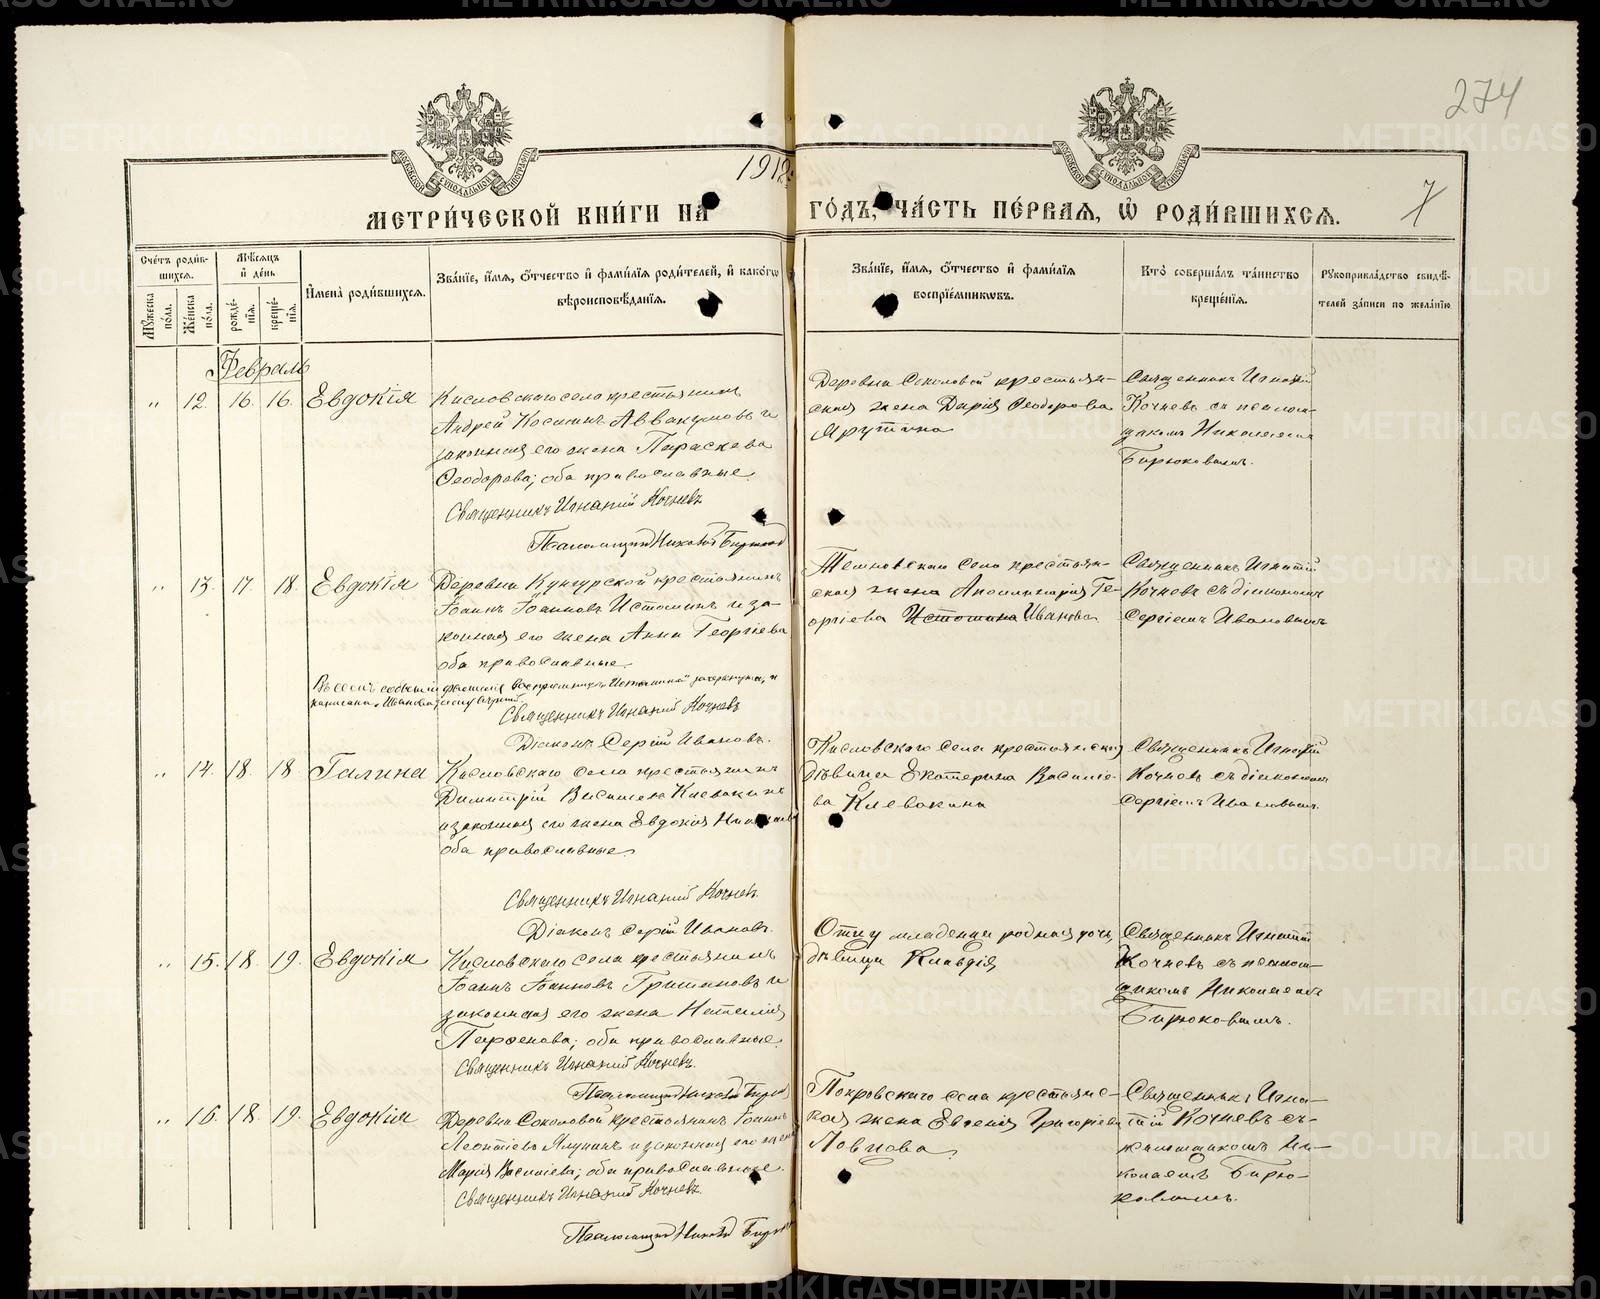 274
1912
МЕТРИ́ЧЕСКОЙ КНИ́ГИ НА ГО́ДЪ, ЧА́СТЬ ПЕ́РВАЯ, Ѡ҆ РОДИ́ВШИХСЯ.
7
Сче́тъ роди́вшихся.
Мѣ́сяцъ и҆ де́нь
Мꙋ́жеска по́ла.
Же́нска по́ла.
рожде́нїя.
креще́нїя.
И҆мена̀ роди́вшихся.
Зва́нїе, и҆́мя, ѻ҆́тчество и҆ фами́лїя роди́телей, и҆ како́гѡ
вѣроисповѣ́данїя.
Зва́нїе, и҆́мя, ѻ҆́тчество и҆ фами́лїя
воспрїе́мникѡвъ.
Кто̀ соверша́лъ та́инство
креще́нїя.
Рꙋкоприкла́дство свидѣ́-
телей за́писи по жела́нїю.
Февраль
" 12. 16. 16. Евдокія
Кисловскаго села крестьянинъ
Андрей Косминъ Аввакумовъ и
законная его жена Параскева
Ѳеодорова; оба православные.
Священникъ Игнатій Кочневъ
Псаломщикъ Николай
Деревни Соколовой крестьян-
ская жена Дарія Ѳеодорова
Ярутина
Священникъ Игнатій
Кочневъ съ псалом-
щикомъ Николаемъ
Бирюковымъ.
" 13. 17. 18. Евдокія
Деревни Кунгурской крестьянинъ
Іоаннъ Іоанновъ Истоминъ и за-
конная его жена Анна Георгіева
оба православные.
Въ семъ событіи фамилія воспріемницы „Истомина" зачеркнута, и
написана „Иванова,
Священникъ Игнатій Кочневъ
Діаконъ Сергій Ивановъ.
Темновскаго села крестьян-
ская жена Аполлинарія Ге-
оргіева Истомина Иванова
Священникъ Игнатій
Кочневъ съ діакономъ
Сергіемъ Ивановымъ
" 14. 18. 18. Галина
Кисловскаго села крестьянинъ
Димитрій Васильевъ Клевакинъ
и законная его жена Евдокія
оба православные.
Священникъ Игнатій Кочневъ.
Діаконъ Сергій Ивановъ.
Кисловскаго села крестьянская
дѣвица Екатерина Василіе-
ва Клевакина
Священникъ Игнатій
Кочневъ съ діакономъ
Сергіемъ Ивановымъ.
" 15. 18. 19. Евдокія
Кисловскаго села крестьянинъ
Іоаннъ Іоанновъ Гришановъ и
законная его жена Наталія
Парѳенова; оба православные.
Священникъ Игнатій Кочневъ.
Псаломщикъ Николай
Отцу младенца родная дочь,
дѣвица Клавдія
Священникъ Игнатій
Кочневъ съ псалом-
щикомъ Николаемъ
Бирюковымъ.
" 16. 18. 19. Евдокія
Деревни Соколовой крестьянинъ Іоаннъ
Леонтіевъ и законная его жена
Марія Василіева; оба православные.
Священникъ Игнатій Кочневъ.
Псаломщикъ Николай
Покровскаго села крестьянс-
кая жена Евгенія Григоріева
Ловцова
Священникъ Игна-
тій Кочневъ съ
псаломщикомъ Ни-
колаемъ Бирю-
ковымъ.
METRIKI.GASO-URAL.RU